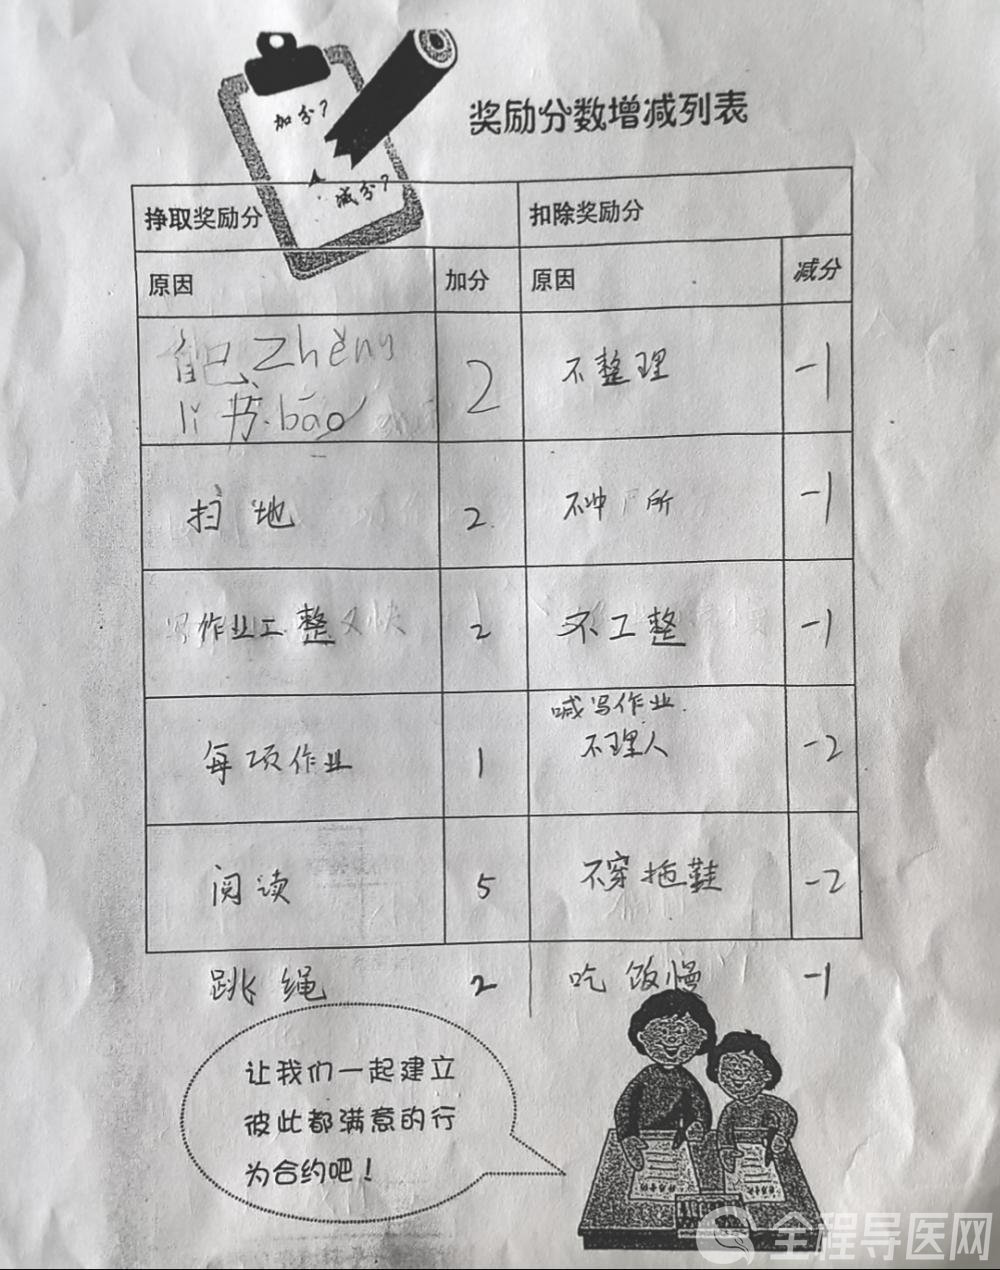 加分？
减分？
奖励分数增减列表
挣取奖励分 扣除奖励分
原因 加分 原因 减分
能把zhěng
lǐ书bāo 2 不整理 -1
扫地 2 不冲厕所 -1
写作业工整又快 2 不工整 -1
喊写作业
每项作业 1 不理人 -2
阅读 5 不穿拖鞋 -2
跳绳 2 吃饭慢 -1
让我们一起建立
彼此都满意的行
为合约吧！
全程导医网